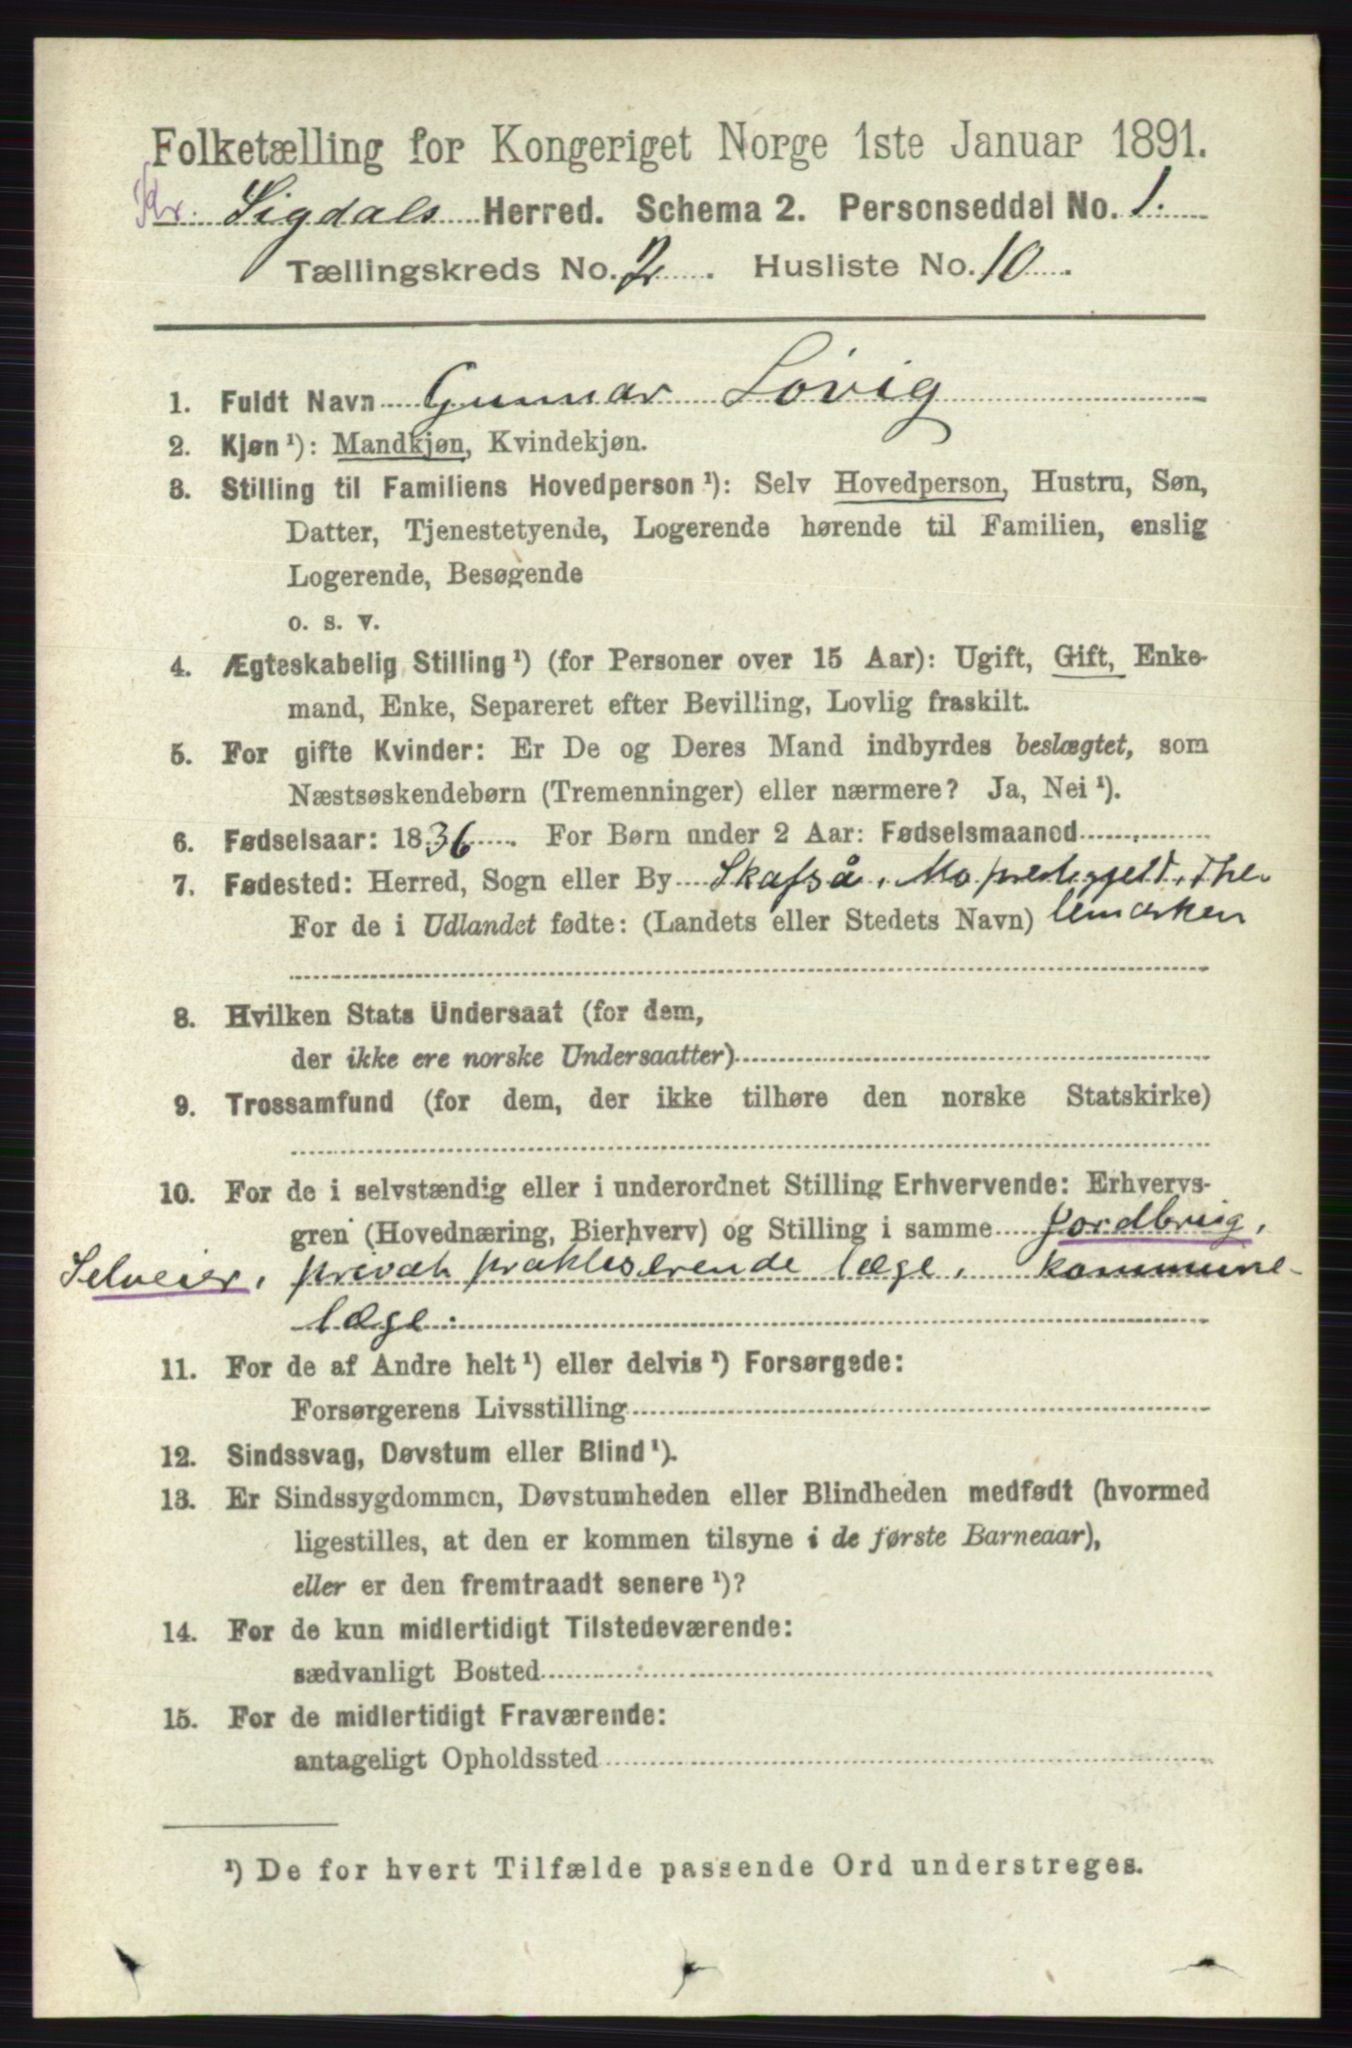 Folketælling for Kongeriget Norge 1ste Januar 1891.
Kr. Sigdals Herred. Schema 2. Personseddel No. 1.
Tællingskreds No. 2. Husliste No. 10.
1. Fuldt Navn Gunnar Lövig
2. Kjøn ¹): Mandkjøn, Kvindekjøn.
3. Stilling til Familiens Hovedperson ¹): Selv Hovedperson, Hustru, Søn,
Datter, Tjenestetyende, Logerende hørende til Familien, enslig
Logerende, Besøgende
o. s. v.
4. Ægteskabelig Stilling ¹) (for Personer over 15 Aar): Ugift, Gift, Enke-
mand, Enke, Separeret efter Bevilling, Lovlig fraskilt.
5. For gifte Kvinder: Er De og Deres Mand indbyrdes beslægtet, som
Næstsøskendebørn (Tremenninger) eller nærmere? Ja, Nei ¹).
6. Fødselsaar: 1836. For Børn under 2 Aar: Fødselsmaaned
7. Fødested: Herred, Sogn eller By Skafså, Mo prestegjeld, The-
For de i Udlandet fødte: (Landets eller Stedets Navn) lemarken
8. Hvilken Stats Undersaat (for dem,
der ikke ere norske Undersaatter)
9. Trossamfund (for dem, der ikke tilhøre den norske Statskirke)
10. For de i selvstændig eller i underordnet Stilling Erhvervende: Erhvervs-
gren (Hovednæring, Bierhverv) og Stilling i samme Jordbrug,
Selveier, privat praktiserende læge, kommune-
læge.
11. For de af Andre helt ¹) eller delvis ¹) Forsørgede:
Forsørgerens Livsstilling
12. Sindssvag, Døvstum eller Blind ¹).
13. Er Sindssygdommen, Døvstumheden eller Blindheden medfødt (hvormed
ligestilles, at den er kommen tilsyne i de første Barneaar),
eller er den fremtraadt senere ¹)?
14. For de kun midlertidigt Tilstedeværende:
sædvanligt Bosted
15. For de midlertidigt Fraværende:
antageligt Opholdssted
¹) De for hvert Tilfælde passende Ord understreges.